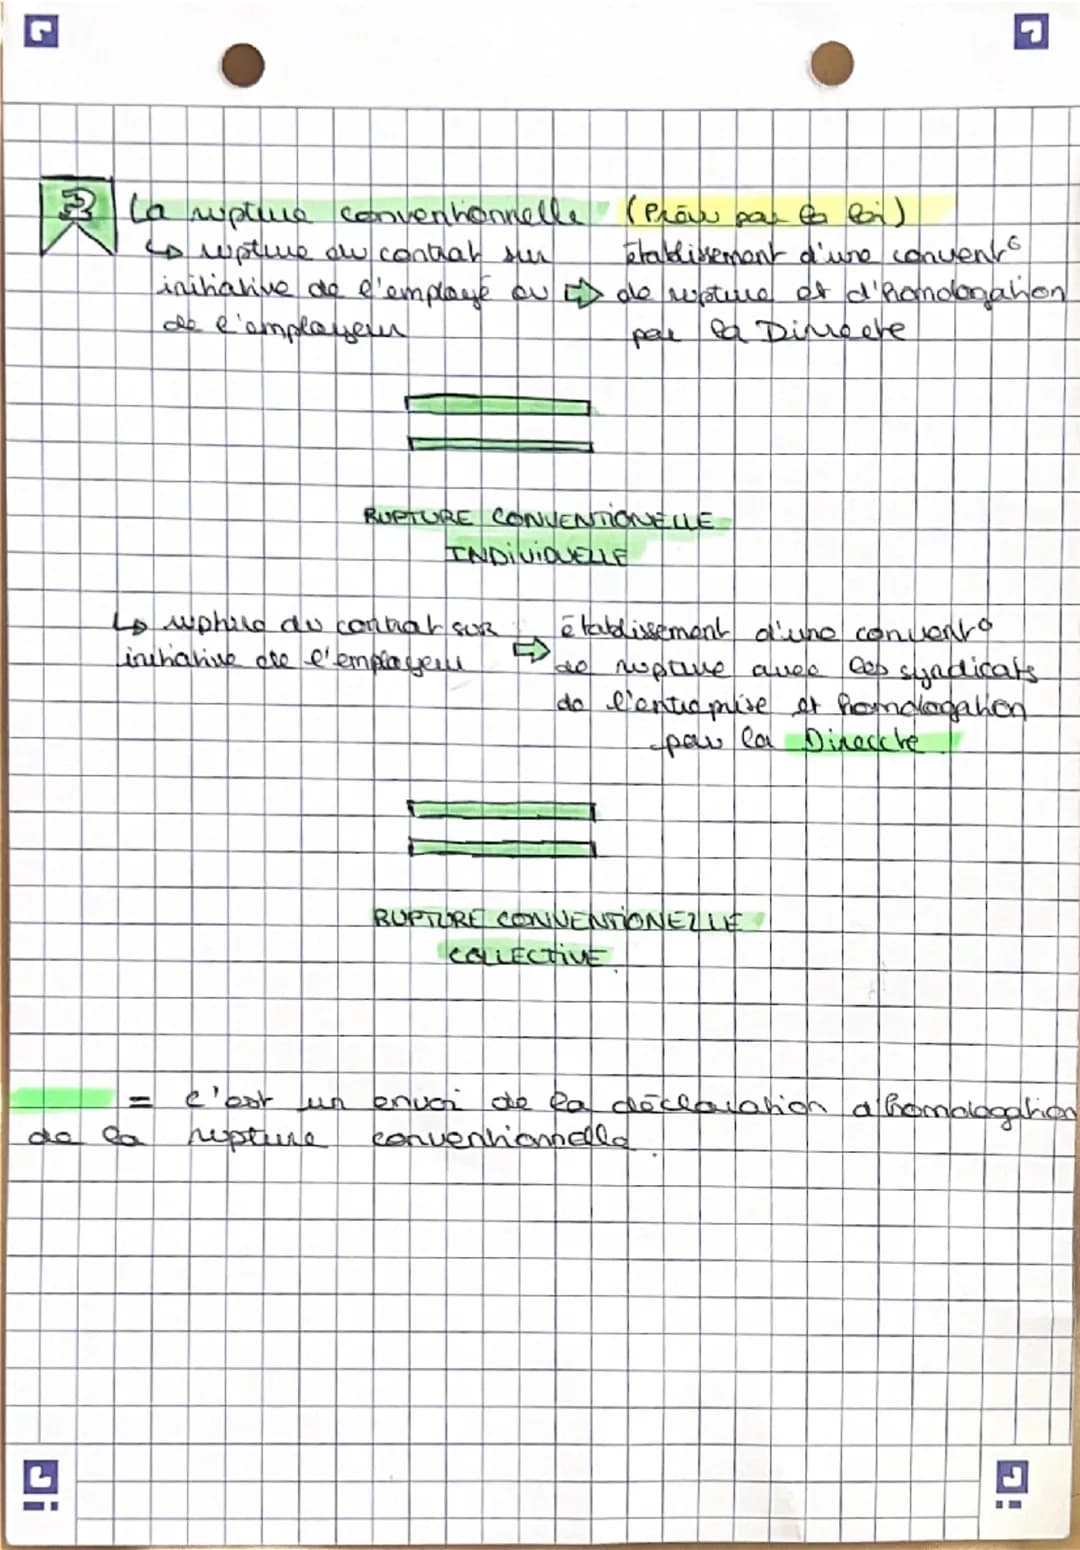 3 La rupture conventionnelle (Prévu par la loi)
↳ rupture du contrat sur
initiative de l'employé ou
de l'employeur
⇨ établissement d'une convent°
de rupture et d'homologation
par la Direccte
RUPTURE CONVENTIONELLE
INDIVIDUELLE
↳ rupture du contrat sur
initiative de l'employeur
⇨ établissement d'une convent°
de rupture avec les syndicats
de l'entreprise et homologation
par la Direccte
RUPTURE CONVENTIONELLE
COLLECTIVE
= c'est un envoi de la déclaration a homologation
de la rupture conventionnelle.